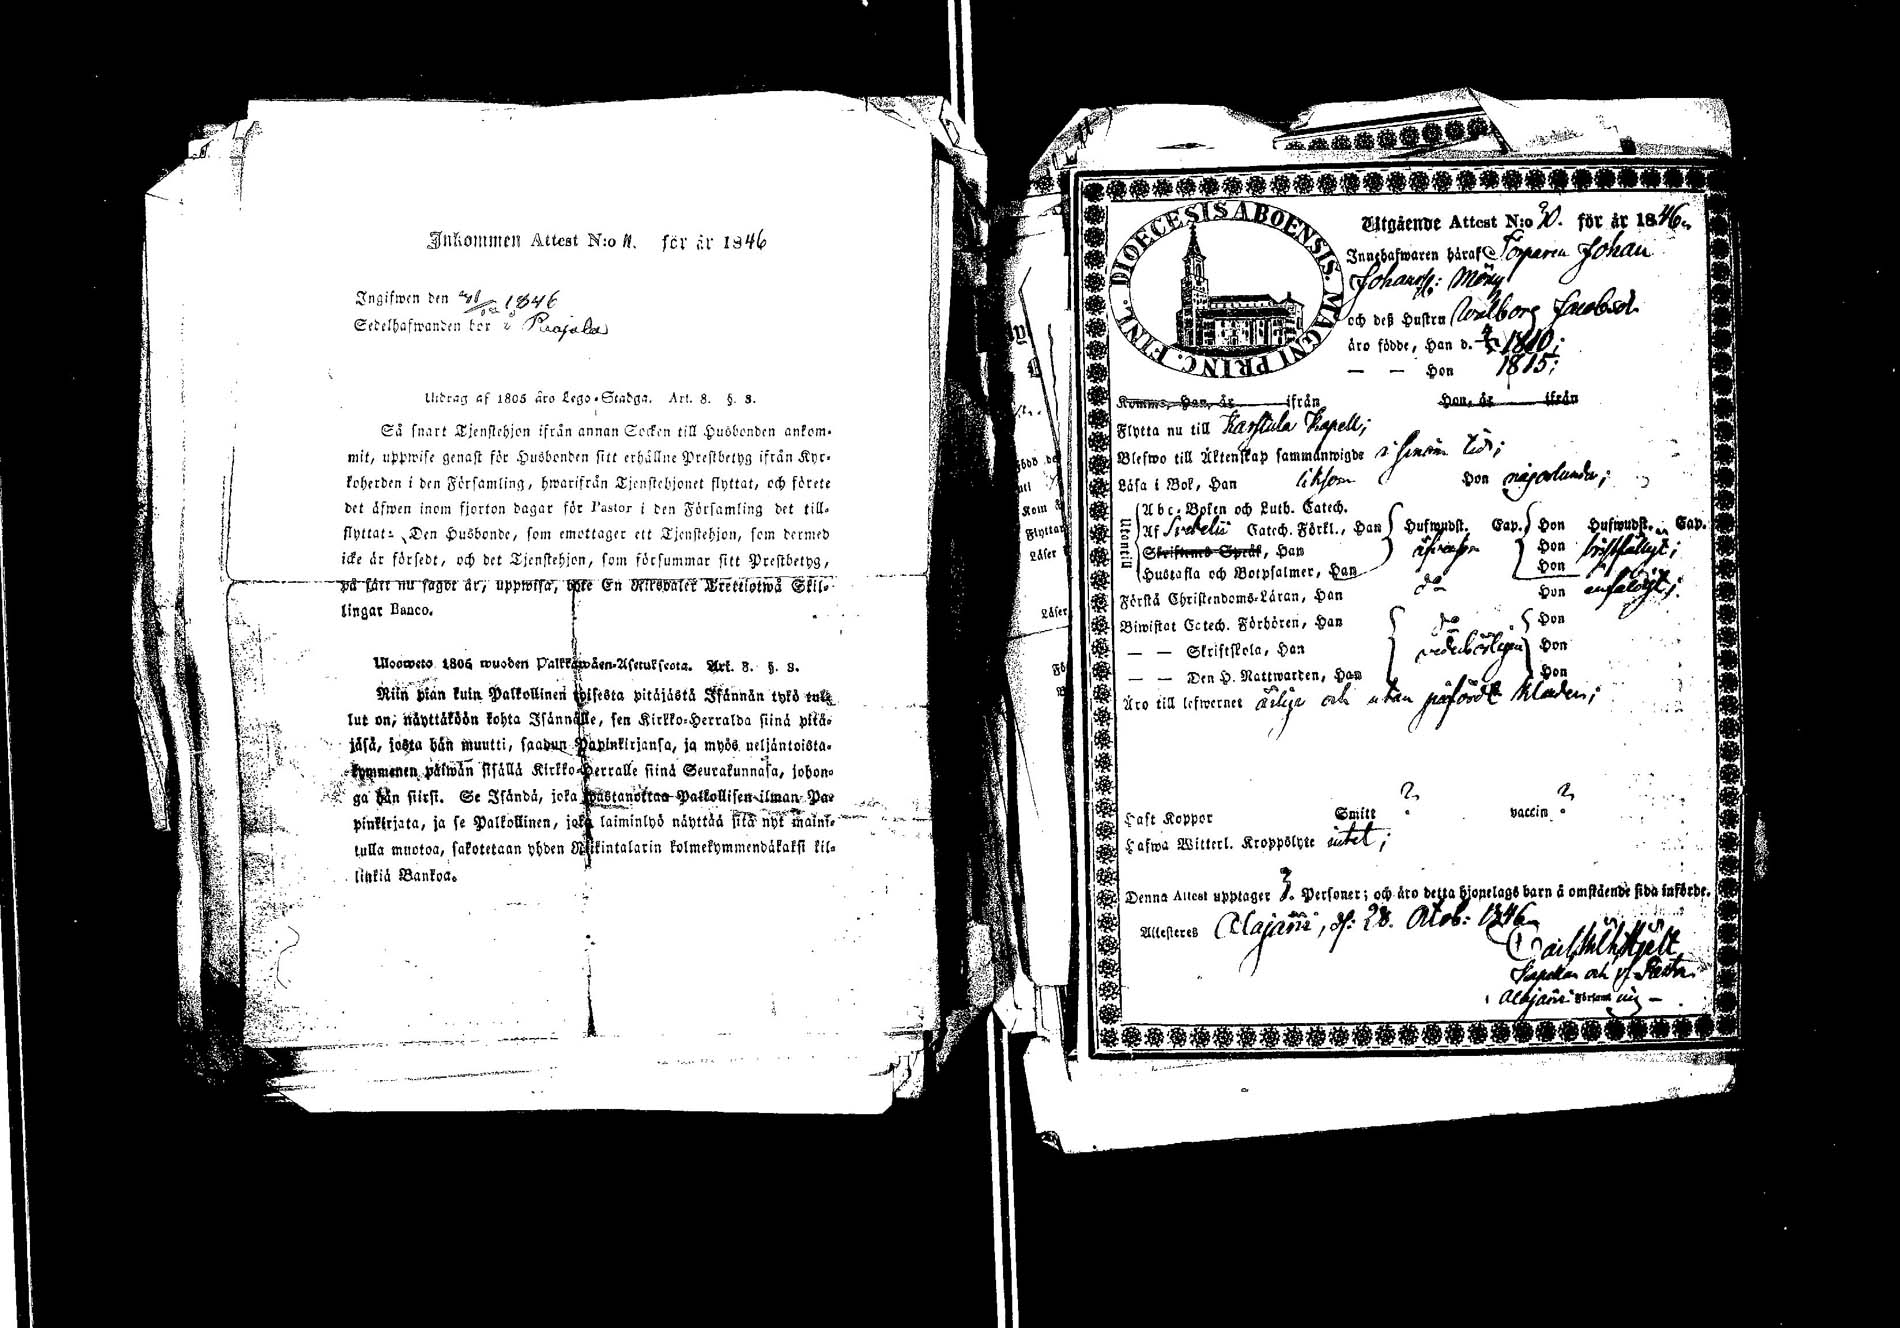 Inkommen Attest N:o 11. för år 1846
Ingifwen den 1846
Sedelhafwanden bor i Puajala
Utdrag af 1805 års Lego-Stadga. Art. 8. §. 3.
Så snart Tjenstehjon ifrån annan Socken till Husbonden ankom-
mit, uppwise genast för Husbonden sitt erhållne Prestbetyg ifrån Kyr-
koherden i den Församling, hwarifrån Tjenstehjonet flyttat, och förete
det äfwen inom fjorton dagar för Pastor i den Församling det till-
flyttat: Den Husbonde, som emottager ett Tjenstehjon, som dermed
icke är försedt, och det Tjenstehjon, som försummar sitt Prestbetyg,
på sätt nu sagdt är, uppwisa, böte En Riksdaler Trettiotwå Skil-
lingar Banco.
Ulosweto 1805 wuoden Palkkawäen-Asetuksesta. Art. 8. §. 3.
Niin pian kuin Palkollinen toisesta pitäjästä Isännän tykö tul-
lut on, näyttäköön kohta Isännälle, sen Kirkko-Herralda siinä pitä-
jäsä, josta hän muutti, saadun Papinkirjansa, ja myös neljäntoista-
kymmenen päiwän sisällä Kirkko-Herralle siinä Seurakunnasa, johon-
ga hän siirsi. Se Isändä, joka wastanottaa Palkollisen ilman Pa-
pinkirjata, ja se Palkollinen, joka laiminlyö näyttää sitä nyt maini-
tulla muotoa, sakotetaan yhden Riikintalarin kolmekymmendäkaksi kil-
linkiä Bankoa.
DIOECESIS ABOENSIS. MAGNI PRINC. FINL.
Utgående Attest N:o 30. för år 1846.
Innehafwaren häraf Torparen Johan
Johanss: Möny
och deß Hustru Walborg Jacobsd.
äro födde, Han d. 1810;
— — Hon 1815;
Komne, Han, år ifrån Hon, år ifrån
Flytta nu till Karstula Kapell;
Blefwo till Äktenskap sammanwigde i sinom tid;
Läsa i Bok, Han liksom Hon någorlunda;
Utantill
Abc-Boken och Luth. Catech.
Af Svebelii Catech. Förkl., Han Hufwudst. Cap. Hon Hufwudst. Cap.
Skriftenes Språk, Han äfvensom Hon bristfälligt;
Hustafla och Botpsalmer, Han Hon
Förstå Christendoms-Läran, Han do Hon enfaldigt;
Biwistat Catech. Förhören, Han do Hon
— — Skriftskola, Han vederbörligen Hon
— — Den H. Nattwarden, Han Hon
Äro till lefwernet ärliga och utan påfördt klander;
Haft Koppor Smitt ? vaccin ?
Hafwa Witterl. Kroppslyte intet;
Denna Attest upptager 3. Personer; och äro detta hjonelags barn å omstående sida införde.
Attesteras Alajärvi, d: 28. Octob: 1846.
Carl Wilh Hjelt
Kapellan och v. Pastor
i Alajärvi Församl ing —